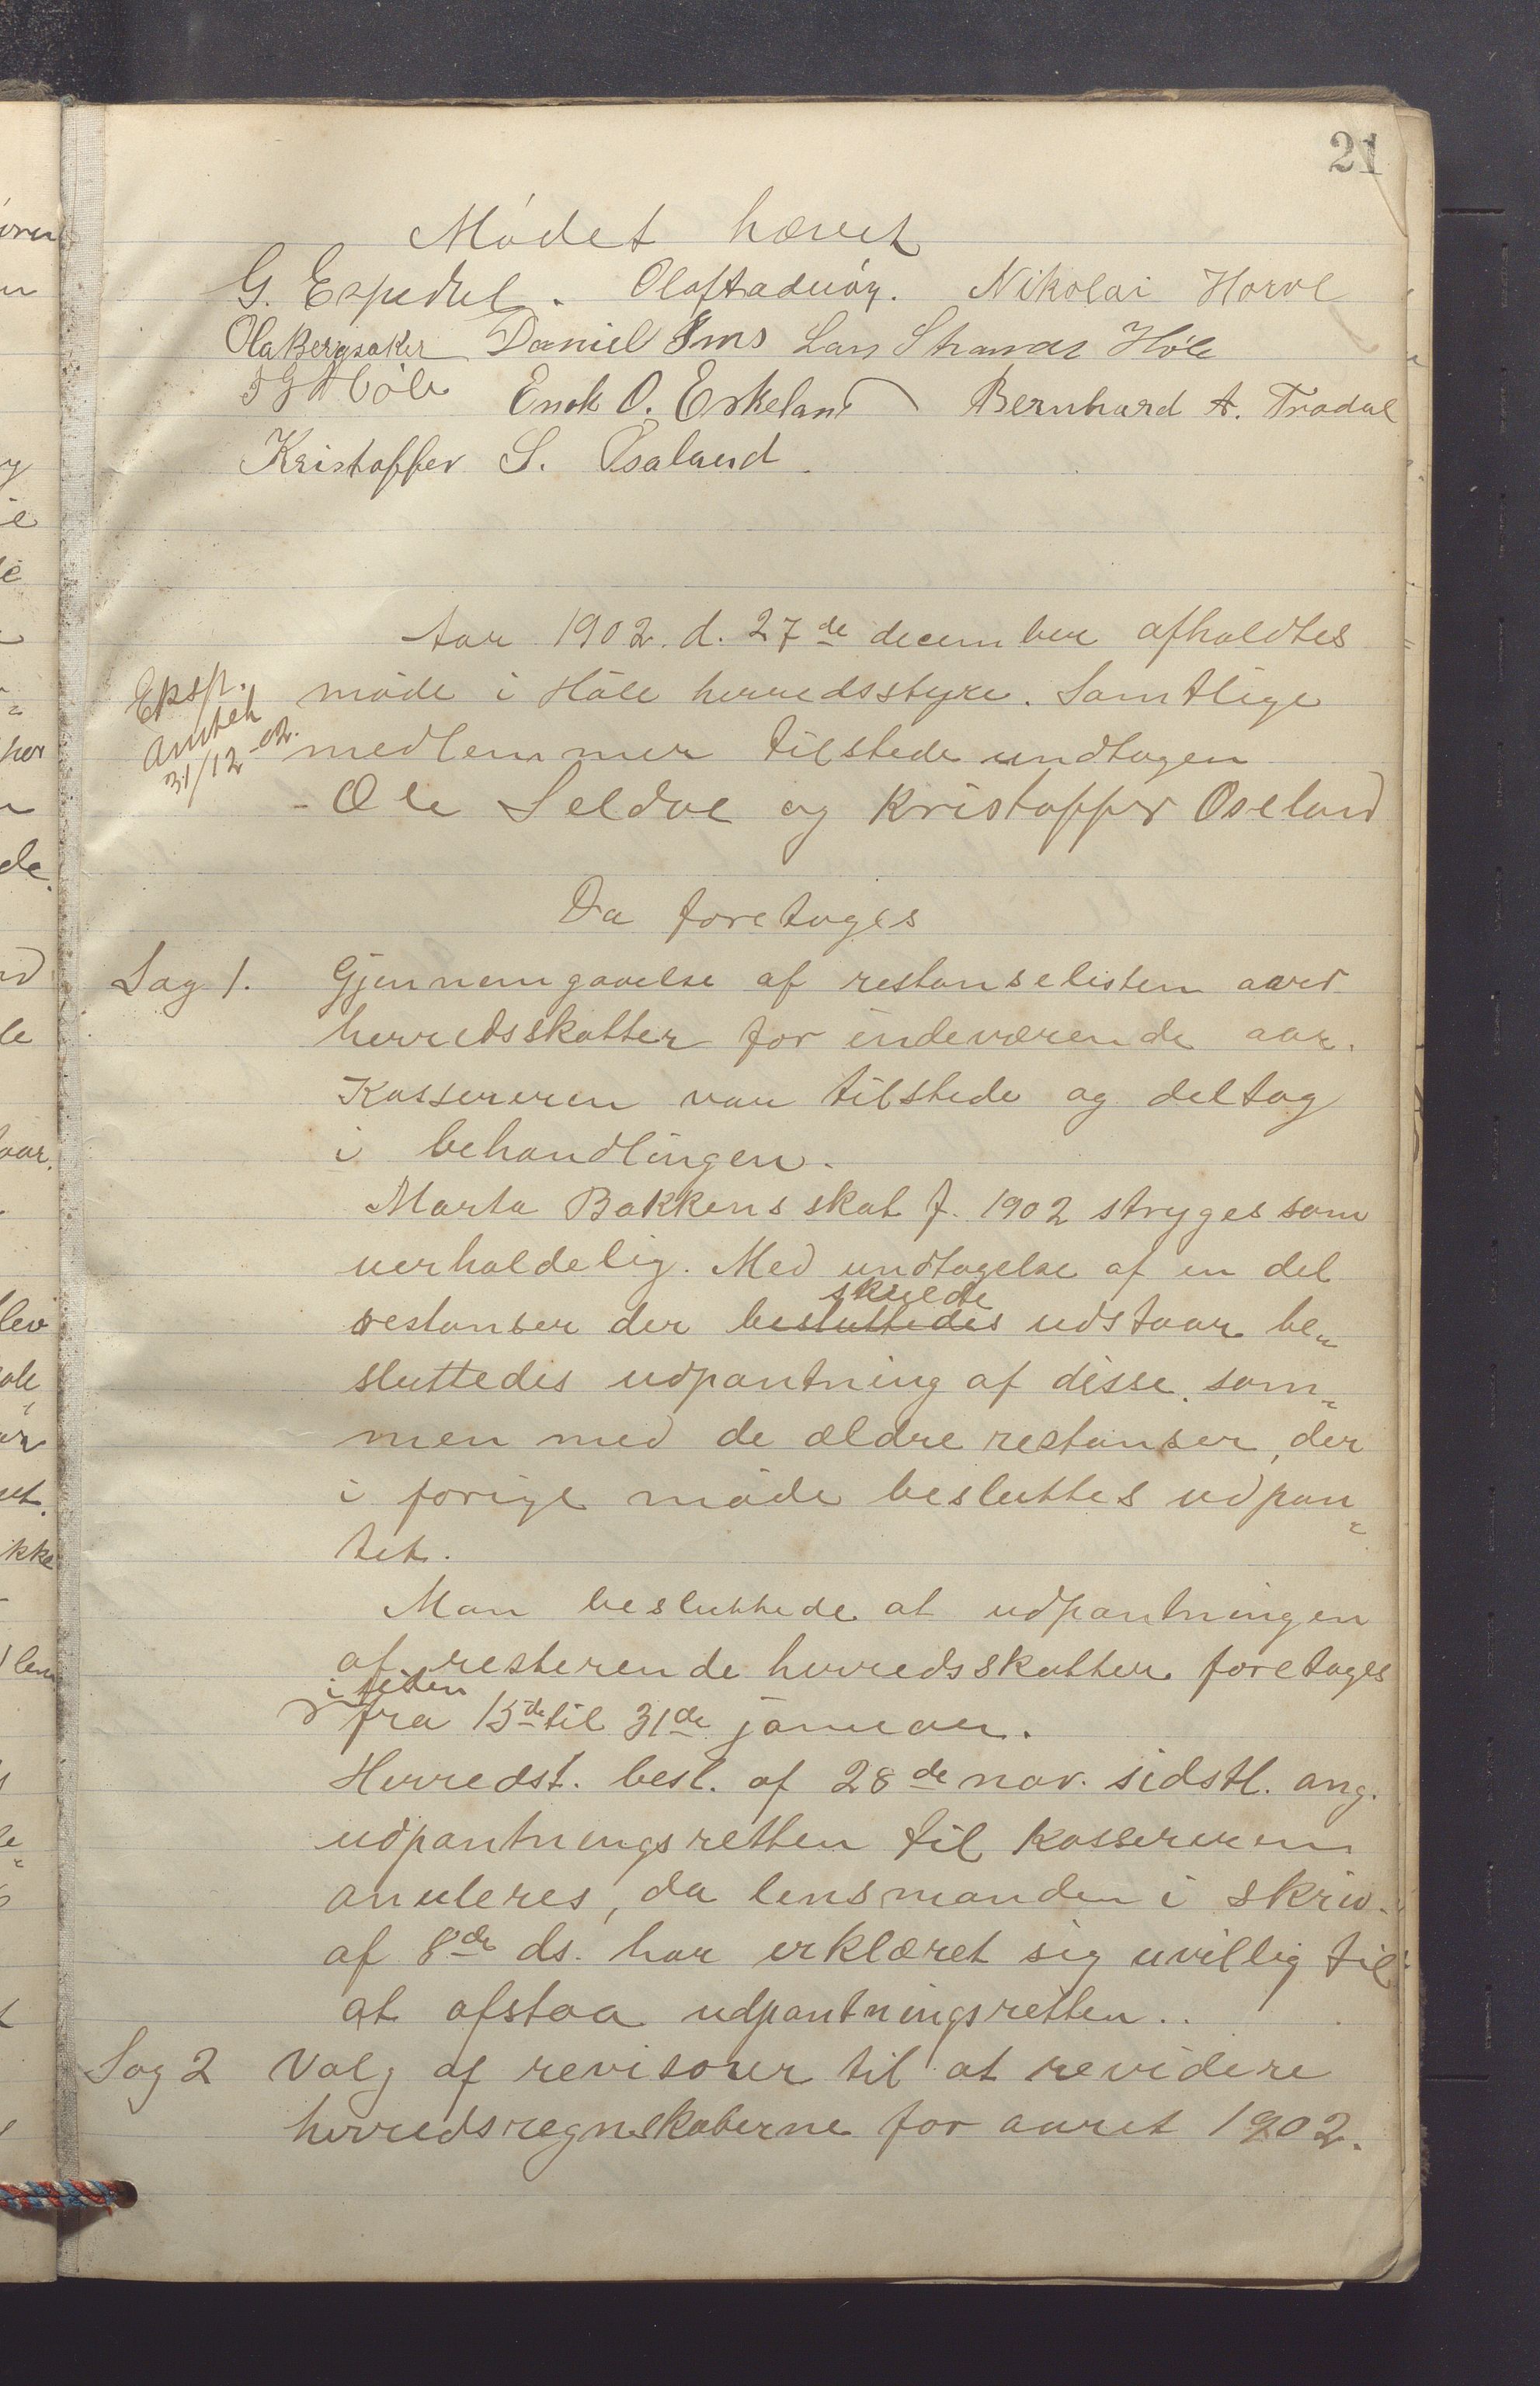 21
Mödet hævet
G. Espedal. Nikolai
Ola Bergsaker Daniel Ims Lars Höle
Höle Enok O. Eskeland Bernhard A. Tradal
Kristoffer S. Osaland.
Aar 1902. d. 27de december afholdtes
Eksp.
amtet
31/12-02.
møde i Höle herredsstyre. Samtlige
medlemmer tilstede undtagen
Ole Seldal og Kristoffer Oseland
Da foretoges
Sag 1. Gjennemgaaelse af restanselisten
herredsskatter for indeværende aar.
Kassereren var tilstede og deltog
i behandlingen.
Marta Bakkens skat f. 1902 stryges som
uerholdelig. Med undtagelse af en del
skulde
restanser der besluttedes udstaar be„
sluttedes udpantning af disse sam„
men med de ældre restanser, der
i forige møde besluttes udpan„
tet.
Man besluttede at udpantningen
af resterende herredsskatter foretages
i tiden
fra 15de til 31de januar.
Herredst. besl. af 28de nov. sidstl. ang.
udpantningsretten til kassereren
anuleres, da lensmanden i skriv.
af 8de ds. har erklæret sig uvillig til
at afstaa udpantningsretten..
Sag 2 Valg af revisorer til at revidere
herredsregnskaberne for aaret 1902.